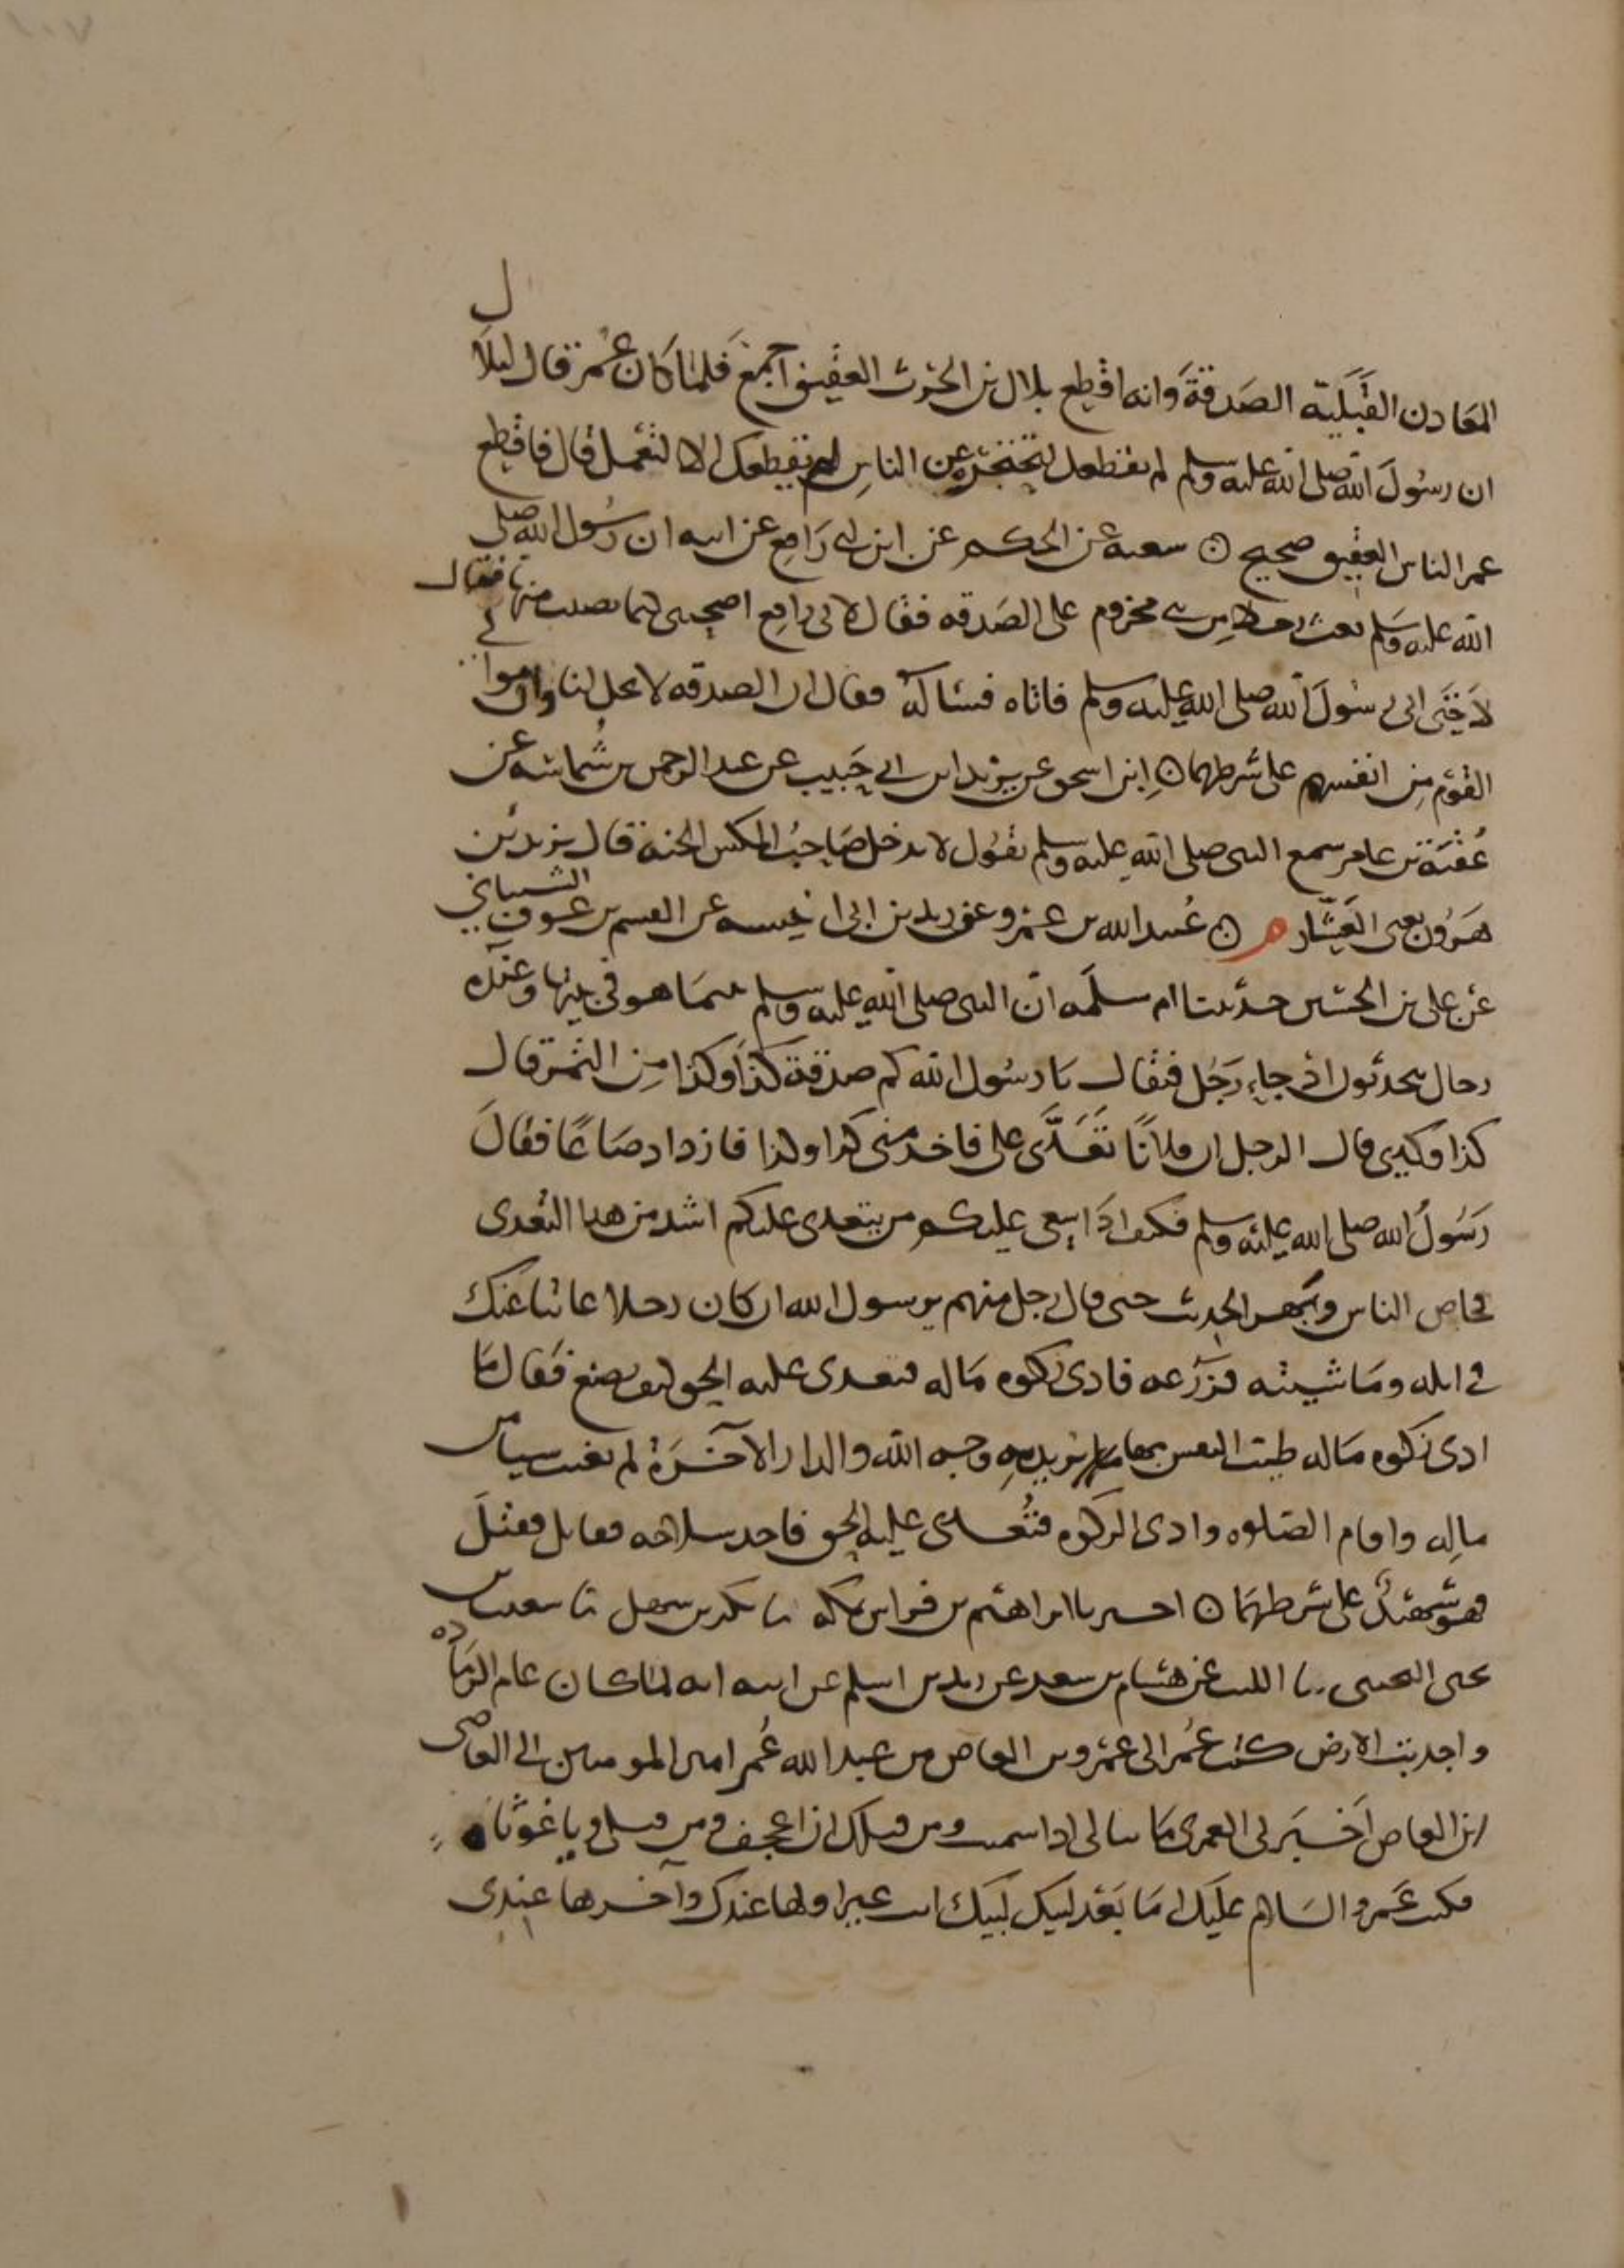 المعادن القبلية الصدقة وانه اقطع بلال بن الحرث العقيق اجمع فلما كان عمر قال لبلال
ان رسول الله صلى الله عليه وسلم لم يقطعك لتحتجره عن الناس لم يقطعك الا لتعمل قال فاقطع
عمر الناس العقيق صحيح ٥ شعبة عن الحكم عن ابن ابي رافع عن ابيه ان رسول الله صلى
الله عليه وسلم بعث رجلا من بني مخزوم على الصدقه فقال لابي رافع اصحبني كيما تصيب منها فقال
لا حتى اتى رسول الله صلى الله عليه وسلم فاتاه فساله فقال ان الصدقه لا تحل لنا وان موالي
القوم من انفسهم على شرطهما ٥ ابن اسحق عن يزيد ابن ابي حبيب عن عبد الرحمن بن شماسه عن
عقبة بن عامر سمع النبي صلى الله عليه وسلم يقول لا يدخل صاحب المكس الجنة قال يزيد بن
هرون يعني العشار م ٥ عبيد الله بن عمرو عن زيد بن ابي انيسه عن القسم بن عوف الشيباني
عن علي بن الحسين حدثتنا ام سلمه ان النبي صلى الله عليه وسلم بينما هو في بيتها وعنده
رجال يتحدثون اذ جاء رجل فقال يا رسول الله كم صدقة كذا وكذا من التمر قال
كذا وكذى قال الرجل ان فلانا تعدى علي فاخذ مني كذا وكذا فازداد صاعا فقال
رسول الله صلى الله عليه وسلم فكيف اذا سعى عليكم من يتعدى عليكم اشد من هذا التعدى
فخاض الناس وبهر الحديث حتى قال رجل منهم يرسول الله ان كان رجلا غائبا عنك
في ابله وماشيته وزرعه فادى زكوه ماله فتعدى عليه الحق كيف يصنع فقال ما
ادى زكوه ماله طيب النفس بها يريد به وجه الله والدار الاخرة لم يغيب شيا من
ماله واقام الصلوه وادى الزكوه فتعدى عليه الحق فاخذ سلاحه فقاتل فقتل
فهو شهيد على شرطهما ٥ اخبرنا ابراهيم بن فراس بمكه نا بكر بن سهل نا شعيب بن
يحيى التجيبى نا الليث عن هشام بن سعد عن زيد بن اسلم عن ابيه انه لما كان عام الرماده
واجدبت الارض كتب عمر الى عمرو بن العاص من عبد الله عمر امير المومنين الى العاصى
ابن العاص اخبر لي العمرى ما تبالى اذا سمنت ومن قبلك ان اعجف ومن قبلى ويا غوثاه
فكتب عمرو السلام عليك اما بعد لبيك لبيك اتت عير اولها عندك وآخرها عندى